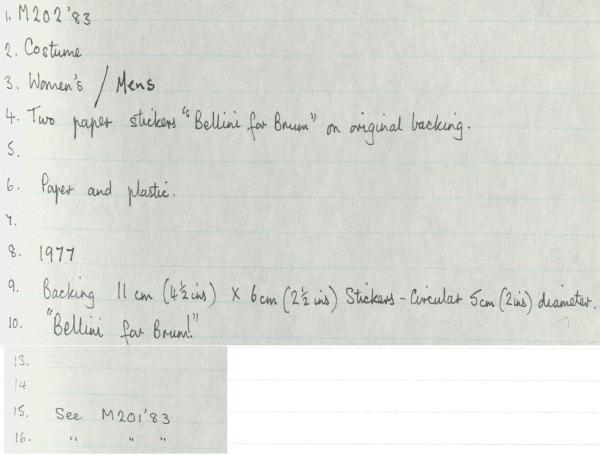 1. M202'83
2. Costume
3. Women's / Mens
4. Two paper stickers "Bellini for Brum" on original backing.
5.
6. Paper and plastic.
7.
8. 1977
9. Backing 11 cm (4½ins) X 6cm (2½ins) Stickers - Circular 5cm (2ins) diameter.
10. "Bellini for Brum!"
13.
14
15. See M201'83
16. " " "